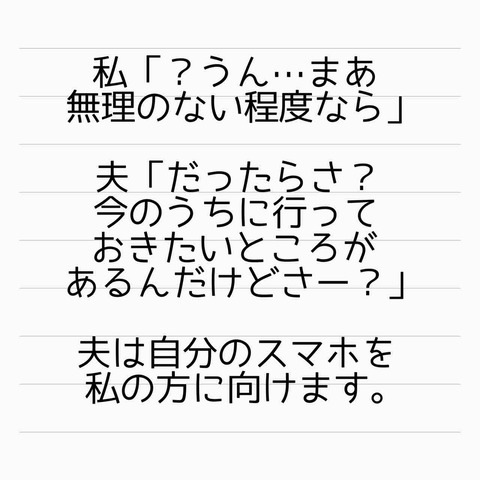 私「？うん…まあ
無理のない程度なら」
夫「だったらさ？
今のうちに行って
おきたいところが
あるんだけどさー？」
夫は自分のスマホを
私の方に向けます。